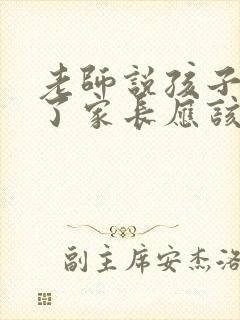 老師說孩子
了家長應該
副主席安杰洛